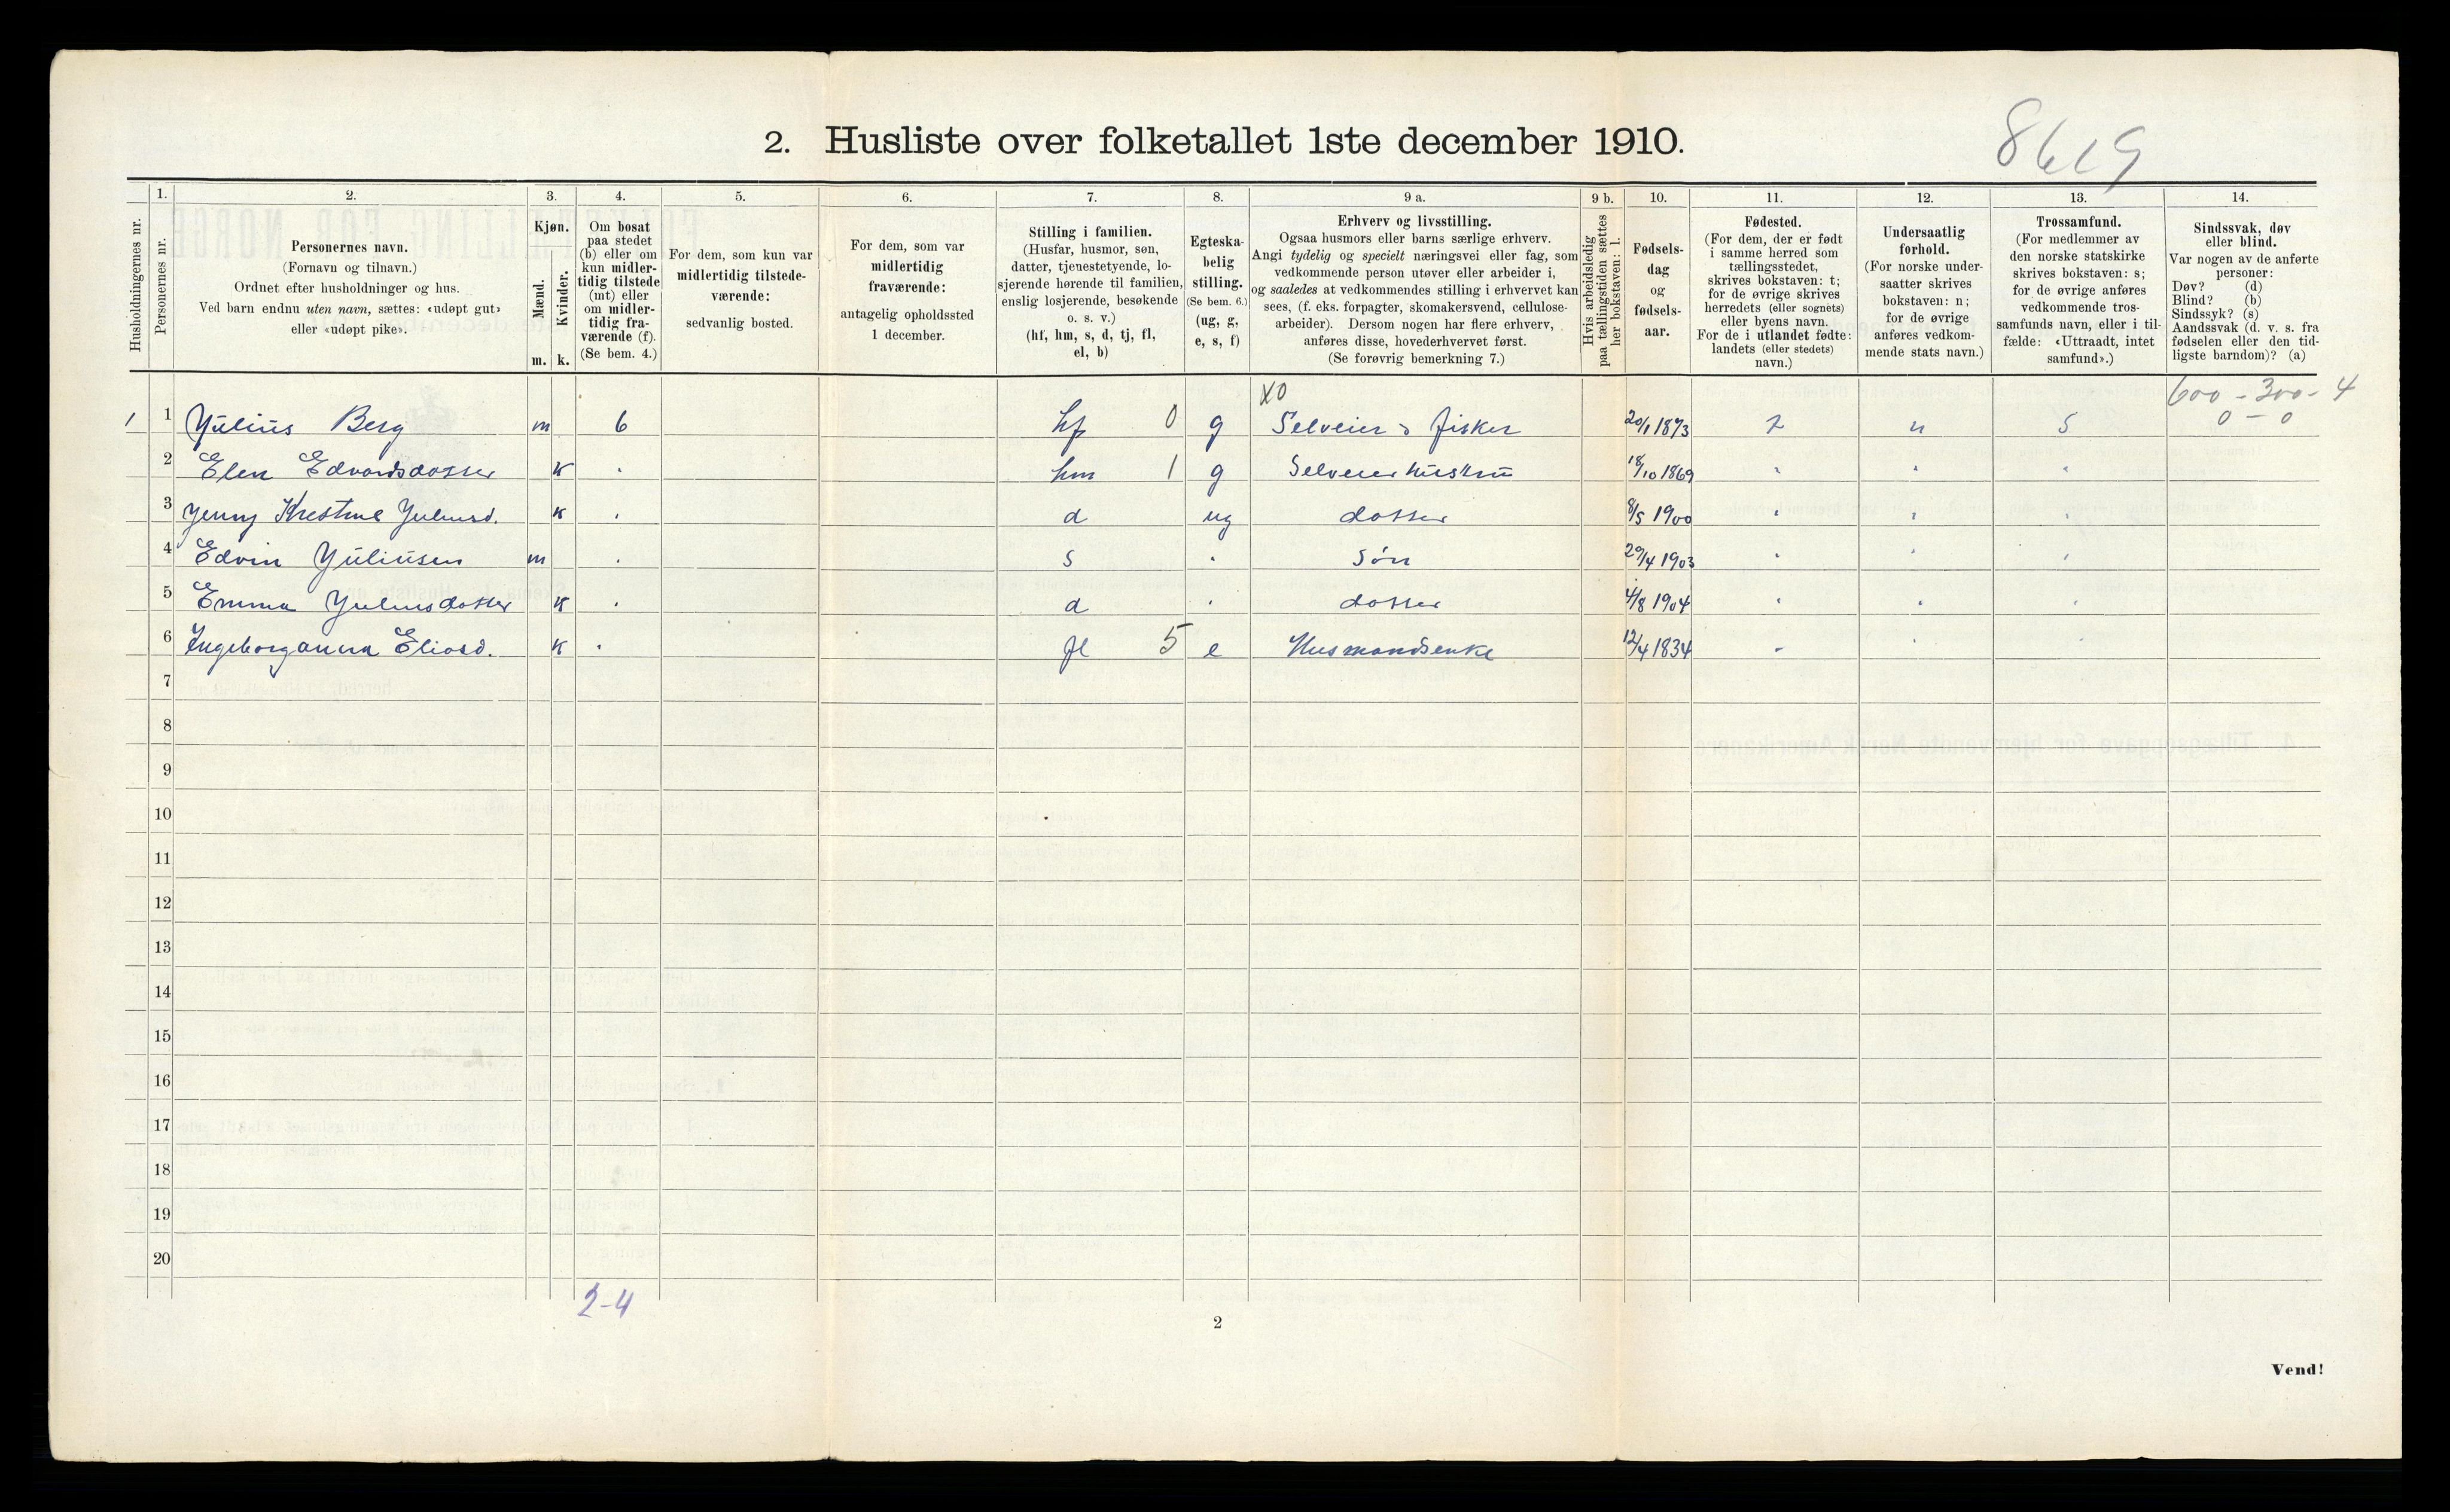 8619
2. Husliste over folketallet 1ste december 1910.
Husholdningernes nr.
1.
Personernes nr.
2.
Personernes navn.
(Fornavn og tilnavn.)
Ordnet efter husholdninger og hus.
Ved barn endnu uten navn, sættes: «udøpt gut»
eller «udøpt pike».
3.
Kjøn.
Mænd.
Kvinder.
m. k.
4.
Om bosat
paa stedet
(b) eller om
kun midler-
tidig tilstede
(mt) eller
om midler-
tidig fra-
værende (f).
(Se bem. 4.)
5.
For dem, som kun var
midlertidig tilstede-
værende:
sedvanlig bosted.
6.
For dem, som var
midlertidig
fraværende:
antagelig opholdssted
1 december.
7.
Stilling i familien.
(Husfar, husmor, søn,
datter, tjenestetyende, lo-
sjerende hørende til familien,
enslig losjerende, besøkende
o. s. v.)
(hf, hm, s, d, tj, fl,
el, b)
8.
Egteska-
belig
stilling.
(Se bem. 6.)
(ug, g,
e, s, f)
9 a.
Erhverv og livsstilling.
Ogsaa husmors eller barns særlige erhverv.
Angi tydelig og specielt næringsvei eller fag, som
vedkommende person utøver eller arbeider i,
og saaledes at vedkommendes stilling i erhvervet kan
sees, (f. eks. forpagter, skomakersvend, cellulose-
arbeider). Dersom nogen har flere erhverv,
anføres disse, hovederhvervet først.
(Se forøvrig bemerkning 7.)
9 b.
Hvis arbeidsledig
paa tællingstiden sættes
her bokstaven: l.
10.
Fødsels-
dag
og
fødsels-
aar.
11.
Fødested.
(For dem, der er født
i samme herred som
tællingsstedet,
skrives bokstaven: t;
for de øvrige skrives
herredets (eller sognets)
eller byens navn.
For de i utlandet fødte:
landets (eller stedets)
navn.)
12.
Undersaatlig
forhold.
(For norske under-
saatter skrives
bokstaven: n;
for de øvrige
anføres vedkom-
mende stats navn.)
13.
Trossamfund.
(For medlemmer av
den norske statskirke
skrives bokstaven: s;
for de øvrige anføres
vedkommende tros-
samfunds navn, eller i til-
fælde: «Uttraadt, intet
samfund».)
14.
Sindssvak, døv
eller blind.
Var nogen av de anførte
personer:
Døv? (d)
Blind? (b)
Sindssyk? (s)
Aandssvak (d. v. s. fra
fødselen eller den tid-
ligste barndom)? (a)
X0 600 - 300 - 4
1 1 Julius Berg m b hf 0 g Selveier & fisker 20/1 1873 t n s 0 - 0
2 Elen Edvardsdatter k " hm 1 g Selveierhustru 18/10 1869 " " "
3 Jenny Krestine Juliusd. k " d ug datter 8/5 1900 " " "
4 Edvin Juliusen m " s " Søn 29/4 1903 " " "
5 Emma Juliusdatter k " d " datter 4/8 1904 " " "
6 Ingeborganna Eliasd. k " fl 5 e Husmandsenke 12/4 1834 " " "
7
8
9
10
11
12
13
14
15
16
17
18
19
20
2-4
2
Vend!